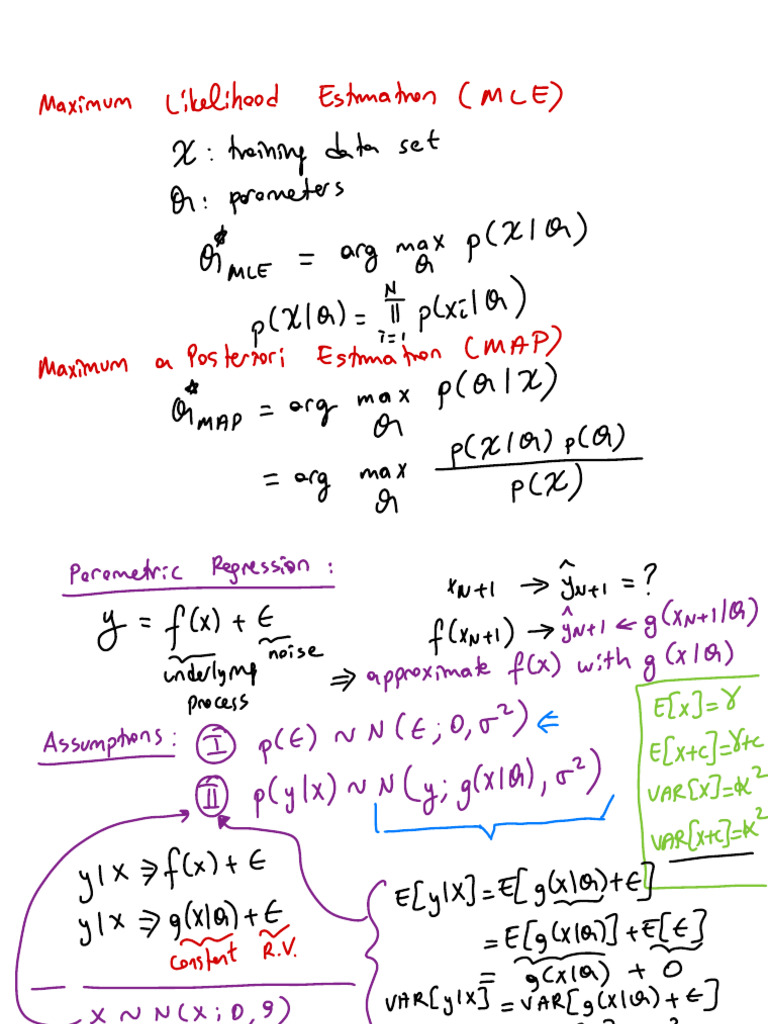 Maximum Likelihood Estimation (MLE)
X : training data set
θ : parameters
θ*MLE = arg max θ p(X|θ)
p(X|θ) = ∏ i=1 N p(xi|θ)
Maximum a Posteriori Estimation (MAP)
θ*MAP = arg max θ p(θ|X)
= arg max θ p(X|θ) p(θ) / p(X)
Parametric Regression :
xN+1 → ŷN+1 = ?
y = f(x) + ϵ
underlying process
noise
f(xN+1) → ŷN+1 ← g(xN+1|θ)
⇒ approximate f(x) with g(x|θ)
E[x] = γ
E[x+c] = γ+c
VAR[x] = α²
VAR[x+c] = α²
Assumptions : I p(ϵ) ~ N(ϵ; 0, σ²) ⇐
II p(y|x) ~ N(y; g(x|θ), σ²)
y|x ⇒ f(x) + ϵ
y|x ⇒ g(x|θ) + ϵ
constant R.V.
E[y|x] = E[g(x|θ) + ϵ]
= E[g(x|θ)] + E[ϵ]
= g(x|θ) + 0
VAR[y|x] = VAR[g(x|θ) + ϵ]
x ~ N(x; 0, 9)